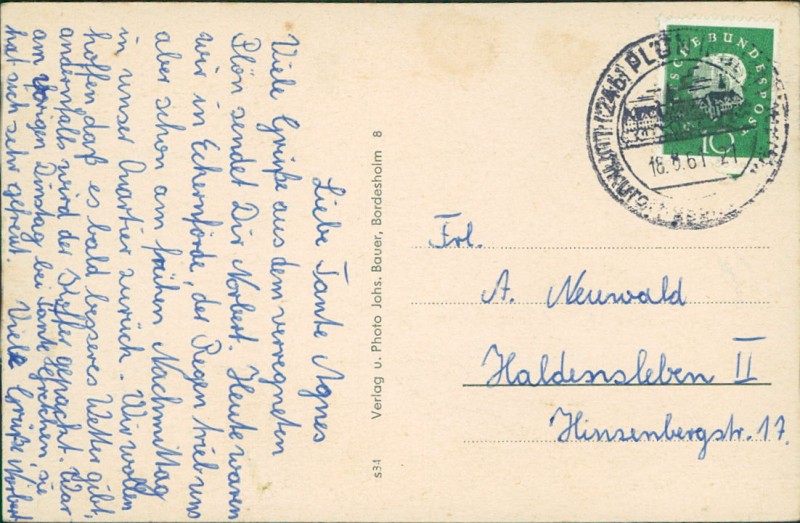 Liebe Tante Agnes
Viele Grüße aus dem verregneten
Plön sendet Dir Norbert. Heute waren
wir in Eckernförde, der Regen trieb uns
aber schon am frühen Nachmittag
in unser Quartier zurück. Wir wollen
hoffen daß es bald besseres Wetter gibt,
andernfalls wird der Koffer gepackt. War
am vorigen Dienstag bei Tante Gretchen, sie
hat sich sehr gefreut. Viele Grüße, Norbert
s34 Verlag u. Photo Johs. Bauer, Bordesholm 8
DEUTSCHE BUNDESPOST
10
PLÖN
18.8.61 21
Frl.
A. Neuwald
Haldensleben II
Hinzenbergstr. 17